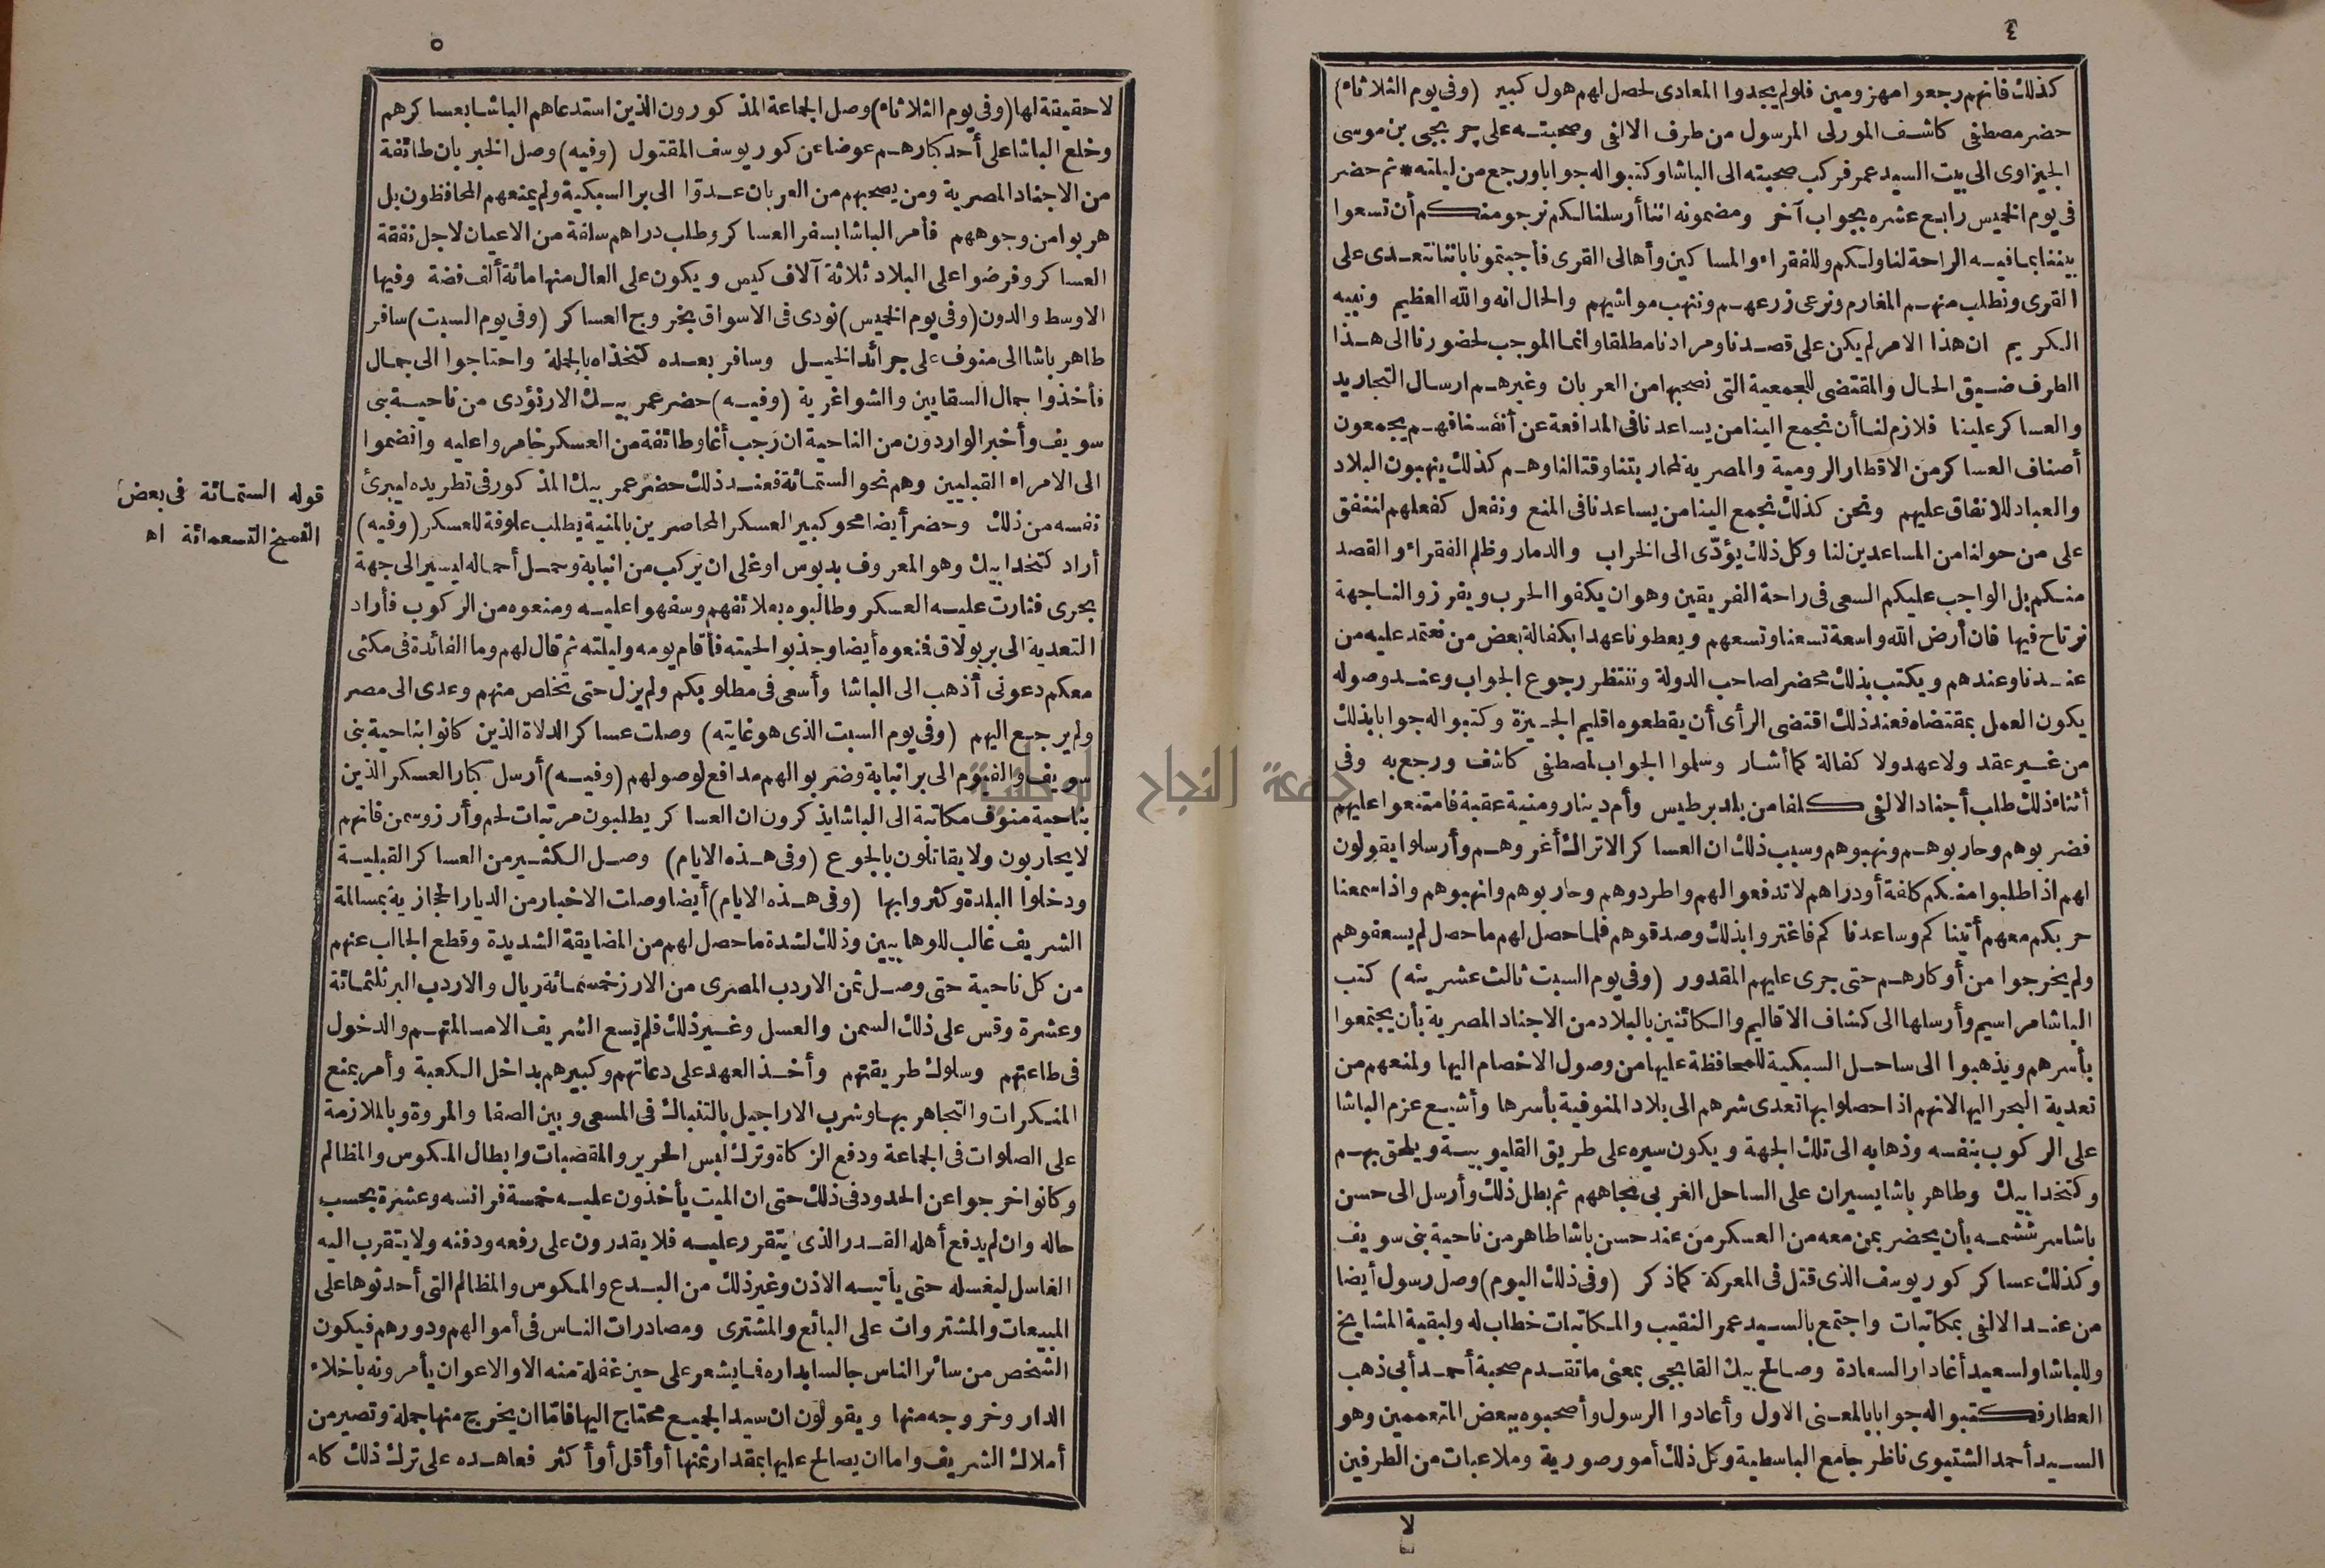 ٤
كذلك فانهم رجعوا مهزومين فلولم يجدوا المعادى لحصل لهم هول كبير (وفى يوم الثلاثاء)
حضر مصطفى كاشف المورلى المرسول من طرف الالفى وصحبته على چربجى بن موسى
الجيزاوى الى بيت السيد عمر فركب صحبته الى الباشا وكتبوا له جوابا ورجع من ليلته * ثم حضر
فى يوم الخميس رابع عشره بجواب آخر ومضمونه اننا أرسلنا لكم نرجو منكم أن تسعوا
بيننا بما فيه الراحة لنا ولكم وللفقراء والمساكين وأهالى القرى فأجبتمونا باننا نتعدى على
القرى ونطلب منهم المغارم ونرعى زرعهم وننهب مواشيهم والحال انه والله العظيم ونبيه
الكريم ان هذا الامر لم يكن على قصدنا ومرادنا مطلقا وانما الموجب لحضورنا الى هذا
الطرف ضيق الحال والمقتضى للجمعية التى نصحبها من العربان وغيرهم ارسال التجاريد
والعساكر علينا فلازم لنا أن نجمع الينا من يساعدنا فى المدافعة عن أنفسنا فهم يجمعون
أصناف العساكر من الاقطار الرومية والمصرية لمحاربتنا وقتالنا وهم كذلك ينهبون البلاد
والعباد للانفاق عليهم ونحن كذلك نجمع الينا من يساعدنا فى المنع ونفعل كفعلهم لننفق
على من حولنا من المساعدين لنا وكل ذلك يؤدّى الى الخراب والدمار وظلم الفقراء والقصد
منكم بل الواجب عليكم السعى فى راحة الفريقين وهو ان يكفوا الحرب ويفرزوا لنا جهة
نرتاح فيها فان أرض الله واسعة تسعنا وتسعهم ويعطونا عهدا بكفالة بعض من نعتمد عليه من
عندنا وعندهم ويكتب بذلك محضر لصاحب الدولة وننتظر رجوع الجواب وعند وصوله
يكون العمل بمقتضاه فعند ذلك اقتضى الرأى أن يقطعوه اقليم الجيزة وكتبوا له جوابا بذلك
من غير عقد ولا عهد ولا كفالة كما أشار وسلموا الجواب لمصطفى كاشف ورجع به وفى
أثناء ذلك طلب أجناد الالفى كلفا من بلد برطيس وأم دينار ومنية عقبة فامتنعوا عليهم
فضربوهم وحاربوهم ونهبوهم وسبب ذلك ان العساكر الاتراك أغروهم وأرسلوا يقولون
لهم اذا طلبوا منكم كلفة أو دراهم لا تدفعوا لهم واطردوهم وحاربوهم وانهبوهم واذا سمعنا
حربكم معهم أتيناكم وساعدناكم فاغتروا بذلك وصدقوهم فلما حصل لهم ما حصل لم يسعفوهم
ولم يخرجوا من أوكارهم حتى جرى عليهم المقدور (وفى يوم السبت ثالث عشرينه) كتب
الباشا مراسيم وأرسلها الى كشاف الاقاليم والكائنين بالبلاد من الاجناد المصرية بأن يجتمعوا
بأسرهم ويذهبوا الى ساحل السبكية للمحافظة عليها من وصول الاخصام اليها ولمنعهم من
تعدية البحر اليها لانهم اذا حصلوا بها تعدى شرهم الى بلاد المنوفية بأسرها وأشيع عزم الباشا
على الركوب بنفسه وذهابه الى تلك الجهة ويكون سيره على طريق القليوبية ويلحق بهم
وكتخدا بيك وطاهر باشا يسيران على الساحل الغربى تجاههم ثم بطل ذلك وأرسل الى حسن
باشا سرششمه بأن يحضر بمن معه من العسكر من عند حسن باشا طاهر من ناحية بنى سويف
وكذلك عساكر كور يوسف الذى قتل فى المعركة كما ذكر (وفى ذلك اليوم) وصل رسول أيضا
من عند الالفى بمكاتبات واجتمع بالسيد عمر النقيب والمكاتبات خطاب له ولبقية المشايخ
وللباشا ولسعيد أغا دار السعادة وصالح بيك القابجى بمعنى ما تقدم صحبة أحمد أبى ذهب
العطار فكتبوا له جوابا بالمعنى الاول وأعادوا الرسول وأصحبوه ببعض المتعممين وهو
السيد أحمد الشتيوى ناظر جامع الباسطية وكل ذلك أمور صورية وملاعبات من الطرفين
لا
٥
لا حقيقة لها (وفى يوم الثلاثاء) وصل الجماعة المذكورون الذين استدعاهم الباشا بعساكرهم
وخلع الباشا على أحد كبارهم عوضا عن كور يوسف المقتول (وفيه) وصل الخبر بان طائفة
من الاجناد المصرية ومن يصحبهم من العربان عدّوا الى بر السبكية ولم يمنعهم المحافظون بل
هربوا من وجوههم فأمر الباشا بسفر العساكر وطلب دراهم سلفة من الاعيان لاجل نفقة
العساكر وفرضوا على البلاد ثلاثة آلاف كيس ويكون على العال منها مائة ألف فضة وفيها
الاوسط والدون (وفى يوم الخميس) نودى فى الاسواق بخروج العساكر (وفى يوم السبت) سافر
طاهر باشا الى منوف على جرائد الخيل وسافر بعده كتخداه بالجملة واحتاجوا الى جمال
فأخذوا جمال السقايين والشواغرية (وفيه) حضر عمر بيك الارنؤدى من ناحية بنى
سويف وأخبر الواردون من الناحية ان رجب أغا وطائفة من العسكر خامروا عليه وانضموا
الى الامراء القبليين وهم نحو الستمائة فعند ذلك حضر عمر بيك المذكور فى تطريده ليبرئ
نفسه من ذلك وحضر أيضا محو كبير العسكر المحاصرين بالمنية يطلب علوفة للعسكر (وفيه)
أراد كتخدا بيك وهو المعروف بدبوس اوغلى ان يركب من انبابة وحمل أحماله ليسير الى جهة
بحرى فثارت عليه العسكر وطالبوه بعلائفهم وسفهوا عليه ومنعوه من الركوب فأراد
التعدية الى بر بولاق فمنعوه أيضا وجذبوا لحيته فأقام يومه وليلته ثم قال لهم وما الفائدة فى مكثى
معكم دعونى أذهب الى الباشا وأسعى فى مطلوبكم ولم يزل حتى تخلص منهم وعدى الى مصر
ولم يرجع اليهم (وفى يوم السبت الذى هو غايته) وصلت عساكر الدلاة الذين كانوا بناحية بنى
سويف والفيوم الى بر انبابة وضربوا لهم مدافع لوصولهم (وفيه) أرسل كبار العسكر الذين
بناحية منوف مكاتبة الى الباشا يذكرون ان العساكر يطلبون مرتبات لحم وأرز وسمن فانهم
لا يحاربون ولا يقاتلون بالجوع (وفى هذه الايام) وصل الكثير من العساكر القبلية
ودخلوا البلدة وكثروا بها (وفى هذه الايام) أيضا وصلت الاخبار من الديار الحجازية بمسالمة
الشريف غالب للوهابيين وذلك لشدة ما حصل لهم من المضايقة الشديدة وقطع الجالب عنهم
من كل ناحية حتى وصل ثمن الاردب المصرى من الارز خمسمائة ريال والاردب البر ثلثمائة
وعشرة وقس على ذلك السمن والعسل وغير ذلك فلم يسع الشريف الا مسالمتهم والدخول
فى طاعتهم وسلوك طريقتهم وأخذ العهد على دعاتهم وكبيرهم بداخل الكعبة وأمر بمنع
المنكرات والتجاهر بها وشرب الاراجيل بالتنباك فى المسعى وبين الصفا والمروة وبالملازمة
على الصلوات فى الجماعة ودفع الزكاة وترك لبس الحرير والمقصبات وابطال المكوس والمظالم
وكانوا خرجوا عن الحدود فى ذلك حتى ان الميت يأخذون عليه خمسة فرانسه وعشرة بحسب
حاله وان لم يدفع أهله القدر الذى يتقرر عليه فلا يقدرون على رفعه ودفنه ولا يتقرب اليه
الغاسل ليغسله حتى يأتيه الاذن وغير ذلك من البدع والمكوس والمظالم التى أحدثوها على
المبيعات والمشتروات على البائع والمشترى ومصادرات الناس فى أموالهم ودورهم فيكون
الشخص من سائر الناس جالسا بداره فما يشعر على حين غفلة منه الا والاعوان يأمرونه بأخلاء
الدار وخروجه منها ويقولون ان سيد الجميع محتاج اليها فاما ان يخرج منها جملة وتصير من
أملاك الشريف واما ان يصالح عليها بمقدار ثمنها أو أقل أو أكثر فعاهده على ترك ذلك كله
قوله الستمائة فى بعض
النسخ التسعمائة اه
جامعة النجاح الوطنية